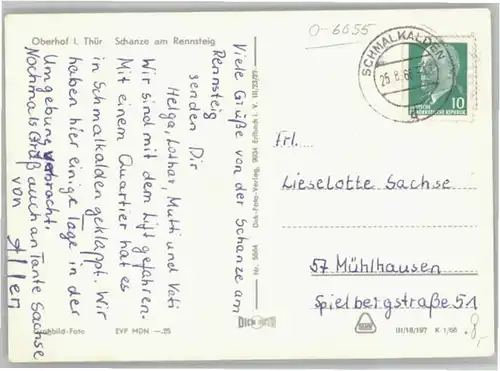 Oberhof i. Thür    Schanze am Rennsteig
Viele Grüße von der Schanze am
Rennsteig
senden Dir
Helga, Lothar, Mutti und Vati
Wir sind mit dem Lift gefahren.
Mit einem Quartier hat es
in Schmalkalden geklappt. Wir
haben hier einige Tage in der
Umgebung verbracht.
Nochmals Gruß auch an Tante Sachse
von Allen
Farbbild-Foto    EVP MDN —.25
Dick-Foto-Verlag, 9634 Erlbach i. V.
Nr. 5684
DICK FOTO
O-6055
SCHMALKALDEN
10
DEUTSCHE
DEMOKRATISCHE REPUBLIK
Frl.
Lieselotte Sachse
57 Mühlhausen
Spielbergstraße 51
III/18/197   K 1/66
8,-